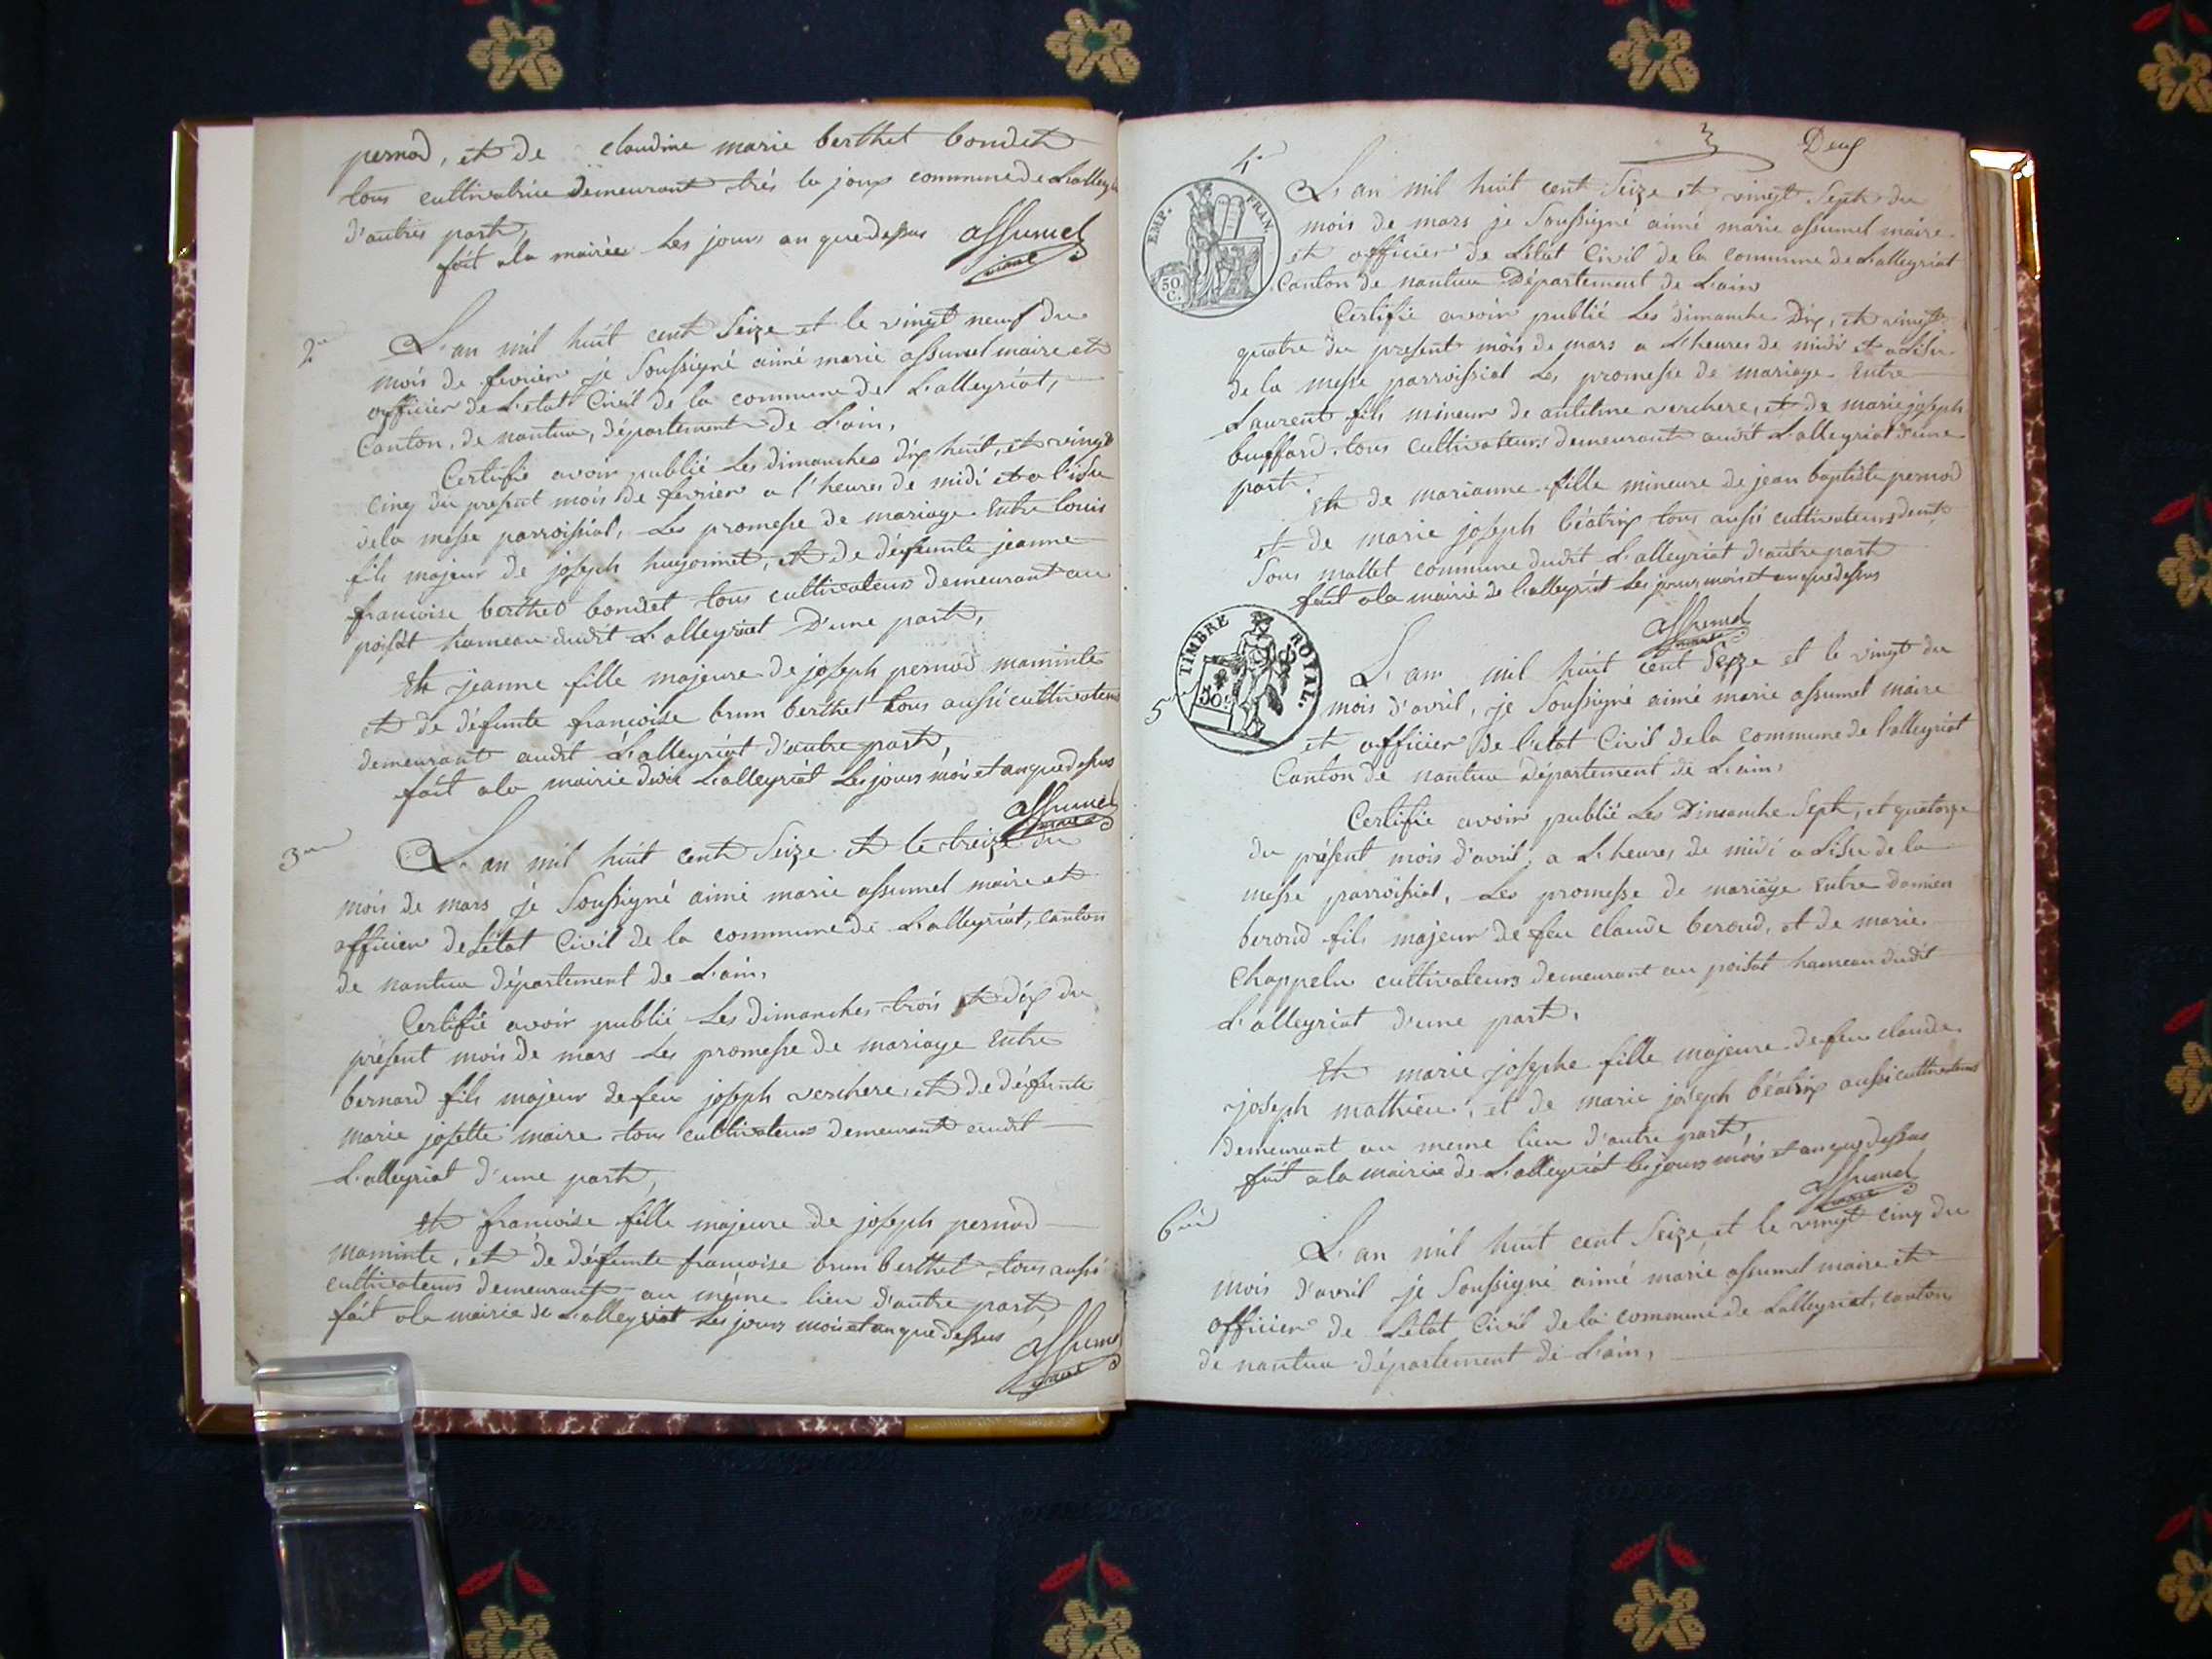 pernod, et de claudine marie berthet bondet
tous cultivatrice demeurant trés la joux commune de Lalleyriat
d'autres part,
fait a la mairée les jours an que dessus assumel
maire
2me
L'an mil huit cent Seize et le vingt neuf du
mois de fevrier je Soussigné aimé marie assumel maire et
officier de L'etat Civil de la commune de L'alleyriat,
Canton, de nantua, département de L'ain,
Certifie avoir publié les dimanches dix huit, et vingt
cinq du present mois de fevrier a l'heures de midi et a l'isu
de la messe parroissial, Les promesse de mariage Entre louis
fils majeur de joseph hugonnet, et de défunte jeanne
francoise berthet bondet tous cultivateurs demeurant au
poisat hameau dudit L'alleyriat D'une part,
Et jeanne fille majeure de joseph pernod maminte
et de défunte francoise brun berthet tous aussi cultivateurs
demeurant audit L'alleyriat d'autre part,
fait a la mairie dudit L'alleyriat Les jours mois et an que dessus
assumel
maire
3me
L'an mil huit cent Seize et le treize du
mois de mars je Soussigné aimé marie assumel maire et
officier de L'état Civil de la commune de L'alleyriat, canton
de nantua département de L'ain,
Certifie avoir publié Les dimanches trois et dix du
présent mois de mars Les promesse de mariage Entre
bernard fils majeur de feu joseph verchere, et de défunte
marie josette maire tous cultivateurs demeurant audit
L'alleyriat d'une part,
Et francoise fille majeure de joseph pernod
maminte, et de défunte francoise brun berthet tous aussi
cultivateurs demeurant au même lieu d'autre part,
fait a la mairie de L'alleyriat Les jours mois et an que dessus
assumel
maire
3 Deux
4e
EMP. FRAN.
50 C.
L'an mil huit cent Seize et vingt Sept du
mois de mars je Soussigné aimé marie assumel maire
et officier de L'état Civil de la commune de L'alleyriat
Canton de nantua Département de L'ain
Certifie avoir publié Les dimanche Dix, et vingt
quatre du present mois de mars a L'heures de midi et a L'isu
de la messe parroissial Les promesse de mariage Entre
Laurent fils mineur de antelme verchere, et de marie joseph
buffard, tous cultivateurs demeurant audit L'alleyriat d'une
part.
Et de marianne fille mineure de jean baptiste pernod
et de marie joseph béatrix tous aussi cultivateurs demt
Sous mallet commune dudit L'alleyriat d'autre part
fait a la mairie de l'alleyriat Les jours mois et an que dessus
assumel
maire
TIMBRE ROYAL.
50c.
5me
L'an mil huit cent Seize et le vingt du
mois d'avril, je Soussigné aimé marie assumel maire
et officier de l'etat Civil de la commune de l'alleyriat
Canton de nantua Département de L'ain,
Certifie avoir publié Les Dimanche Sept, et quatorze
du présent mois d'avril, a L'heures de midi a L'isu de la
messe parroissial, Les promesse de mariage Entre damien
beroud fils majeur de feu claude beroud, et de marie
Chappelu cultivateurs demeurant au poisat hameau dudit
L'alleyriat d'une part,
Et marie josephe fille majeure de feu claude
joseph mathieu, et de marie joseph béatrix aussi cultivateurs
demeurant au meme lieu d'autre part,
fait a la mairie de L'alleyriat les jours mois et an que dessus
assumel
maire
6me
L'an mil huit cent Seize et le vingt cinq du
mois d'avril je Soussigné aimé marie assumel maire et
officier de L'état Civil de la commune de Lalleyriat, canton
de nantua département de L'ain,